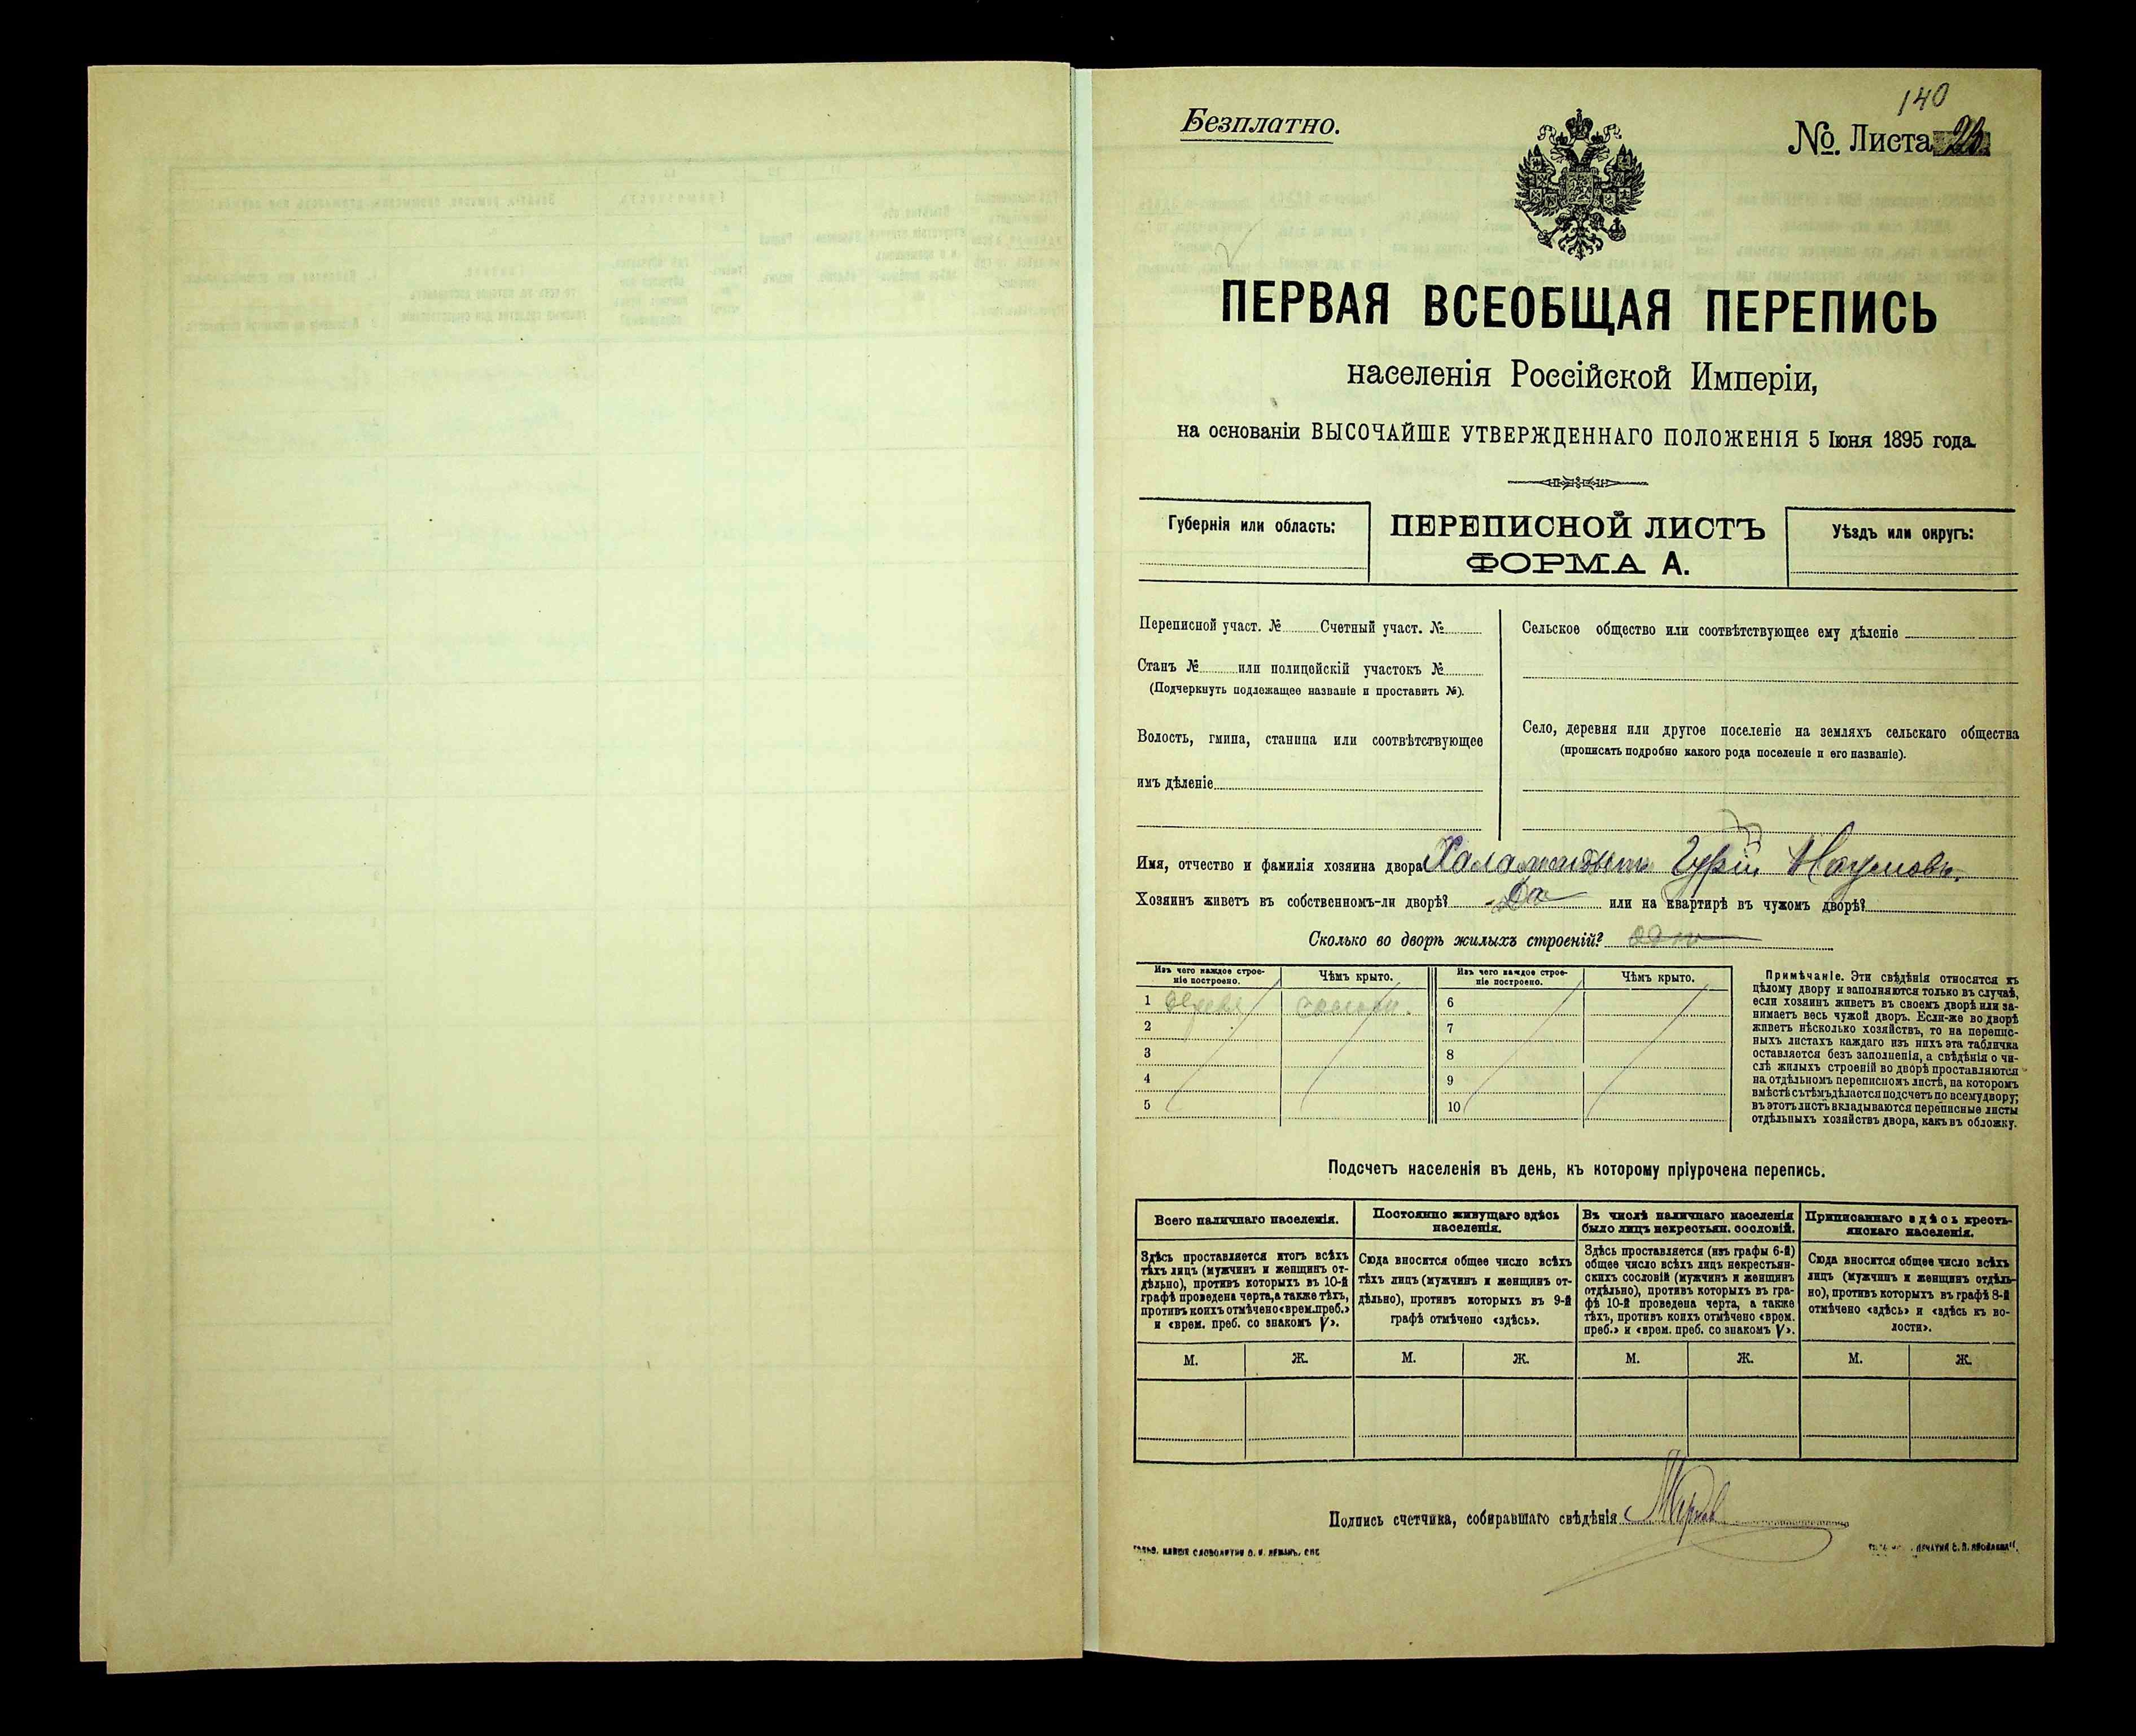 140
Безплатно.
№. Листа
ПЕРВАЯ ВСЕОБЩАЯ ПЕРЕПИСЬ
населенія Россійской Имперіи,
на основаніи ВЫСОЧАЙШЕ УТВЕРЖДЕННАГО ПОЛОЖЕНІЯ 5 Іюня 1895 года.
Губернія или область:
ПЕРЕПИСНОЙ ЛИСТЪ
ФОРМА А.
Уѣздъ или округъ:
Переписной участ. № Счетный участ. №
Станъ № или полицейскій участокъ №
(Подчеркнуть подлежащее названіе и проставить №).
Волость, гмина, станица или соотвѣтствующее
имъ дѣленіе
Сельское общество или соотвѣтствующее ему дѣленіе
Село, деревня или другое поселеніе на земляхъ сельскаго общества
(прописать подробно какого рода поселеніе и его названіе).
Имя, отчество и фамилія хозяина двора Гурій Наумовъ.
Хозяинъ живетъ въ собственномъ-ли дворѣ? Да или на квартирѣ въ чужомъ дворѣ?
Сколько во дворѣ жилыхъ строеній? одно
Изъ чего каждое строе-
ніе построено.
Чѣмъ крыто.
Изъ чего каждое строе-
ніе построено.
Чѣмъ крыто.
1 6
2 7
3 8
4 9
5 10
Примѣчаніе. Эти свѣдѣнія относятся къ
цѣлому двору и заполняются только въ случаѣ,
если хозяинъ живетъ въ своемъ дворѣ или за-
нимаетъ весь чужой дворъ. Если-же во дворѣ
живетъ нѣсколько хозяйствъ, то на перепис-
ныхъ листахъ каждаго изъ нихъ эта табличка
оставляется безъ заполненія, а свѣдѣнія о чи-
слѣ жилыхъ строеній во дворѣ проставляются
на отдѣльномъ переписномъ листѣ, на которомъ
вмѣстѣ съ тѣмъ дѣлается подсчетъ по всему двору;
въ этотъ листъ вкладываются переписные листы
отдѣльныхъ хозяйствъ двора, какъ въ обложку.
Подсчетъ населенія въ день, къ которому пріурочена перепись.
Всего наличнаго населенія.
Здѣсь проставляется итогъ всѣхъ
тѣхъ лицъ (мужчинъ и женщинъ от-
дѣльно), противъ которыхъ въ 10-й
графѣ проведена черта, а также тѣхъ,
противъ коихъ отмѣчено «врем. преб.»
и «врем. преб. со знакомъ V».
Постоянно живущаго здѣсь
населенія.
Сюда вносится общее число всѣхъ
тѣхъ лицъ (мужчинъ и женщинъ от-
дѣльно), противъ которыхъ въ 9-й
графѣ отмѣчено «здѣсь».
Въ числѣ наличнаго населенія
было лицъ некрестьян. сословій.
Здѣсь проставляется (изъ графы 6-й)
общее число всѣхъ лицъ некрестьян-
скихъ сословій (мужчинъ и женщинъ
отдѣльно), противъ которыхъ въ гра-
фѣ 10-й проведена черта, а также
тѣхъ, противъ коихъ отмѣчено «врем.
преб.» и «врем. преб. со знакомъ V».
Приписаннаго здѣсь кресть-
янскаго населенія.
Сюда вносится общее число всѣхъ
лицъ (мужчинъ и женщинъ отдѣль-
но), противъ которыхъ въ графѣ 8-й
отмѣчено «здѣсь» и «здѣсь къ во-
лости».
М. Ж. М. Ж. М. Ж. М. Ж.
Подпись счетчика, собиравшаго свѣдѣнія